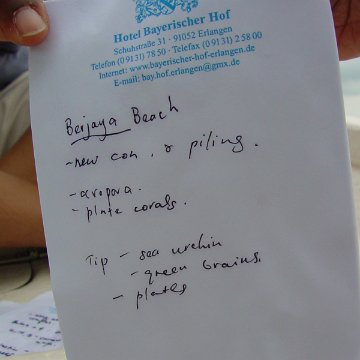 Hotel Bayerischer Hof
Schuhstraße 31 · 91052 Erlangen
Telefon (0 91 31) 78 50 · Telefax (0 91 31) 2 58 00
Internet: www.bayerischer-hof-erlangen.de
E-mail: bay.hof.erlangen@gmx.de
Berjaya Beach
- new con. & piling.
- acropora.
- plate corals.
Tip - sea urchin
- green brains.
- plates